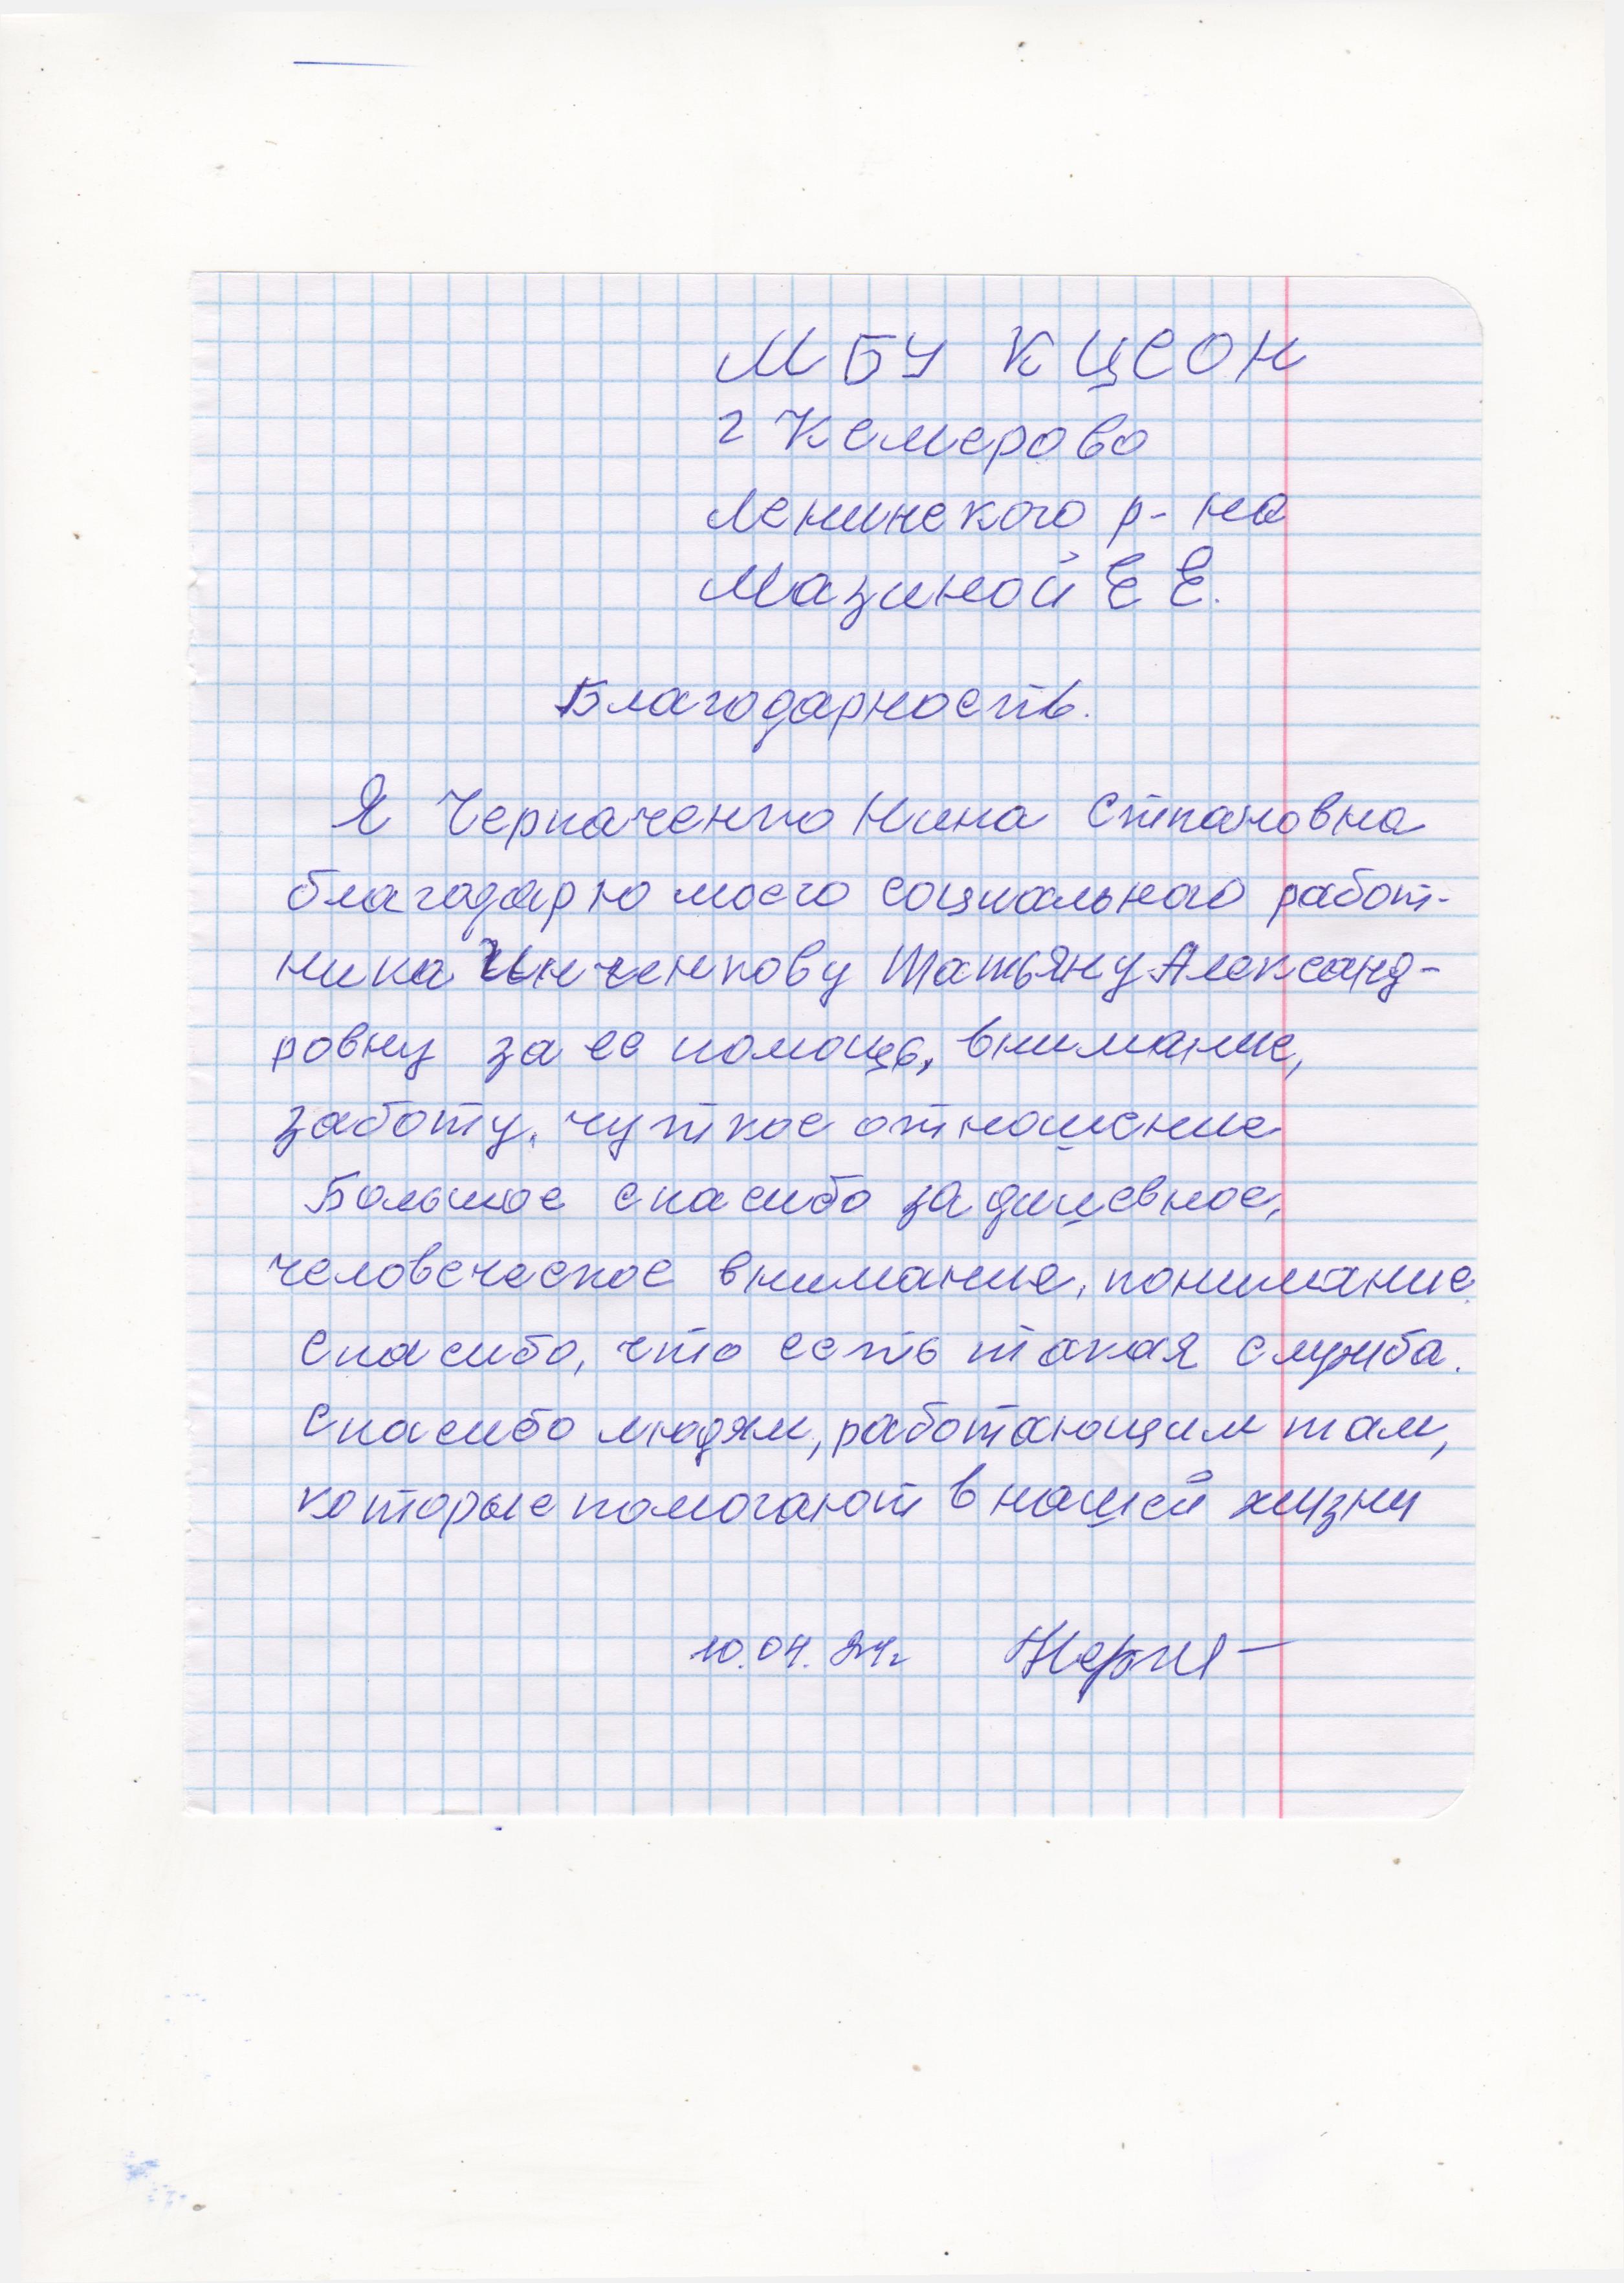 МБУ КЦСОН
г Кемерово
Ленинского р-на
Мазиной Е Е.
Благодарность.
Я Нина
благодарю моего социального работ-
ника Татьяну Александ-
ровну за ее помощь, внимание,
заботу, чуткое отношение
Большое спасибо за душевное,
человеческое внимание, понимание
Спасибо, что есть такая служба.
Спасибо людям, работающим там,
которые помогают в нашей жизни
10.04.24г